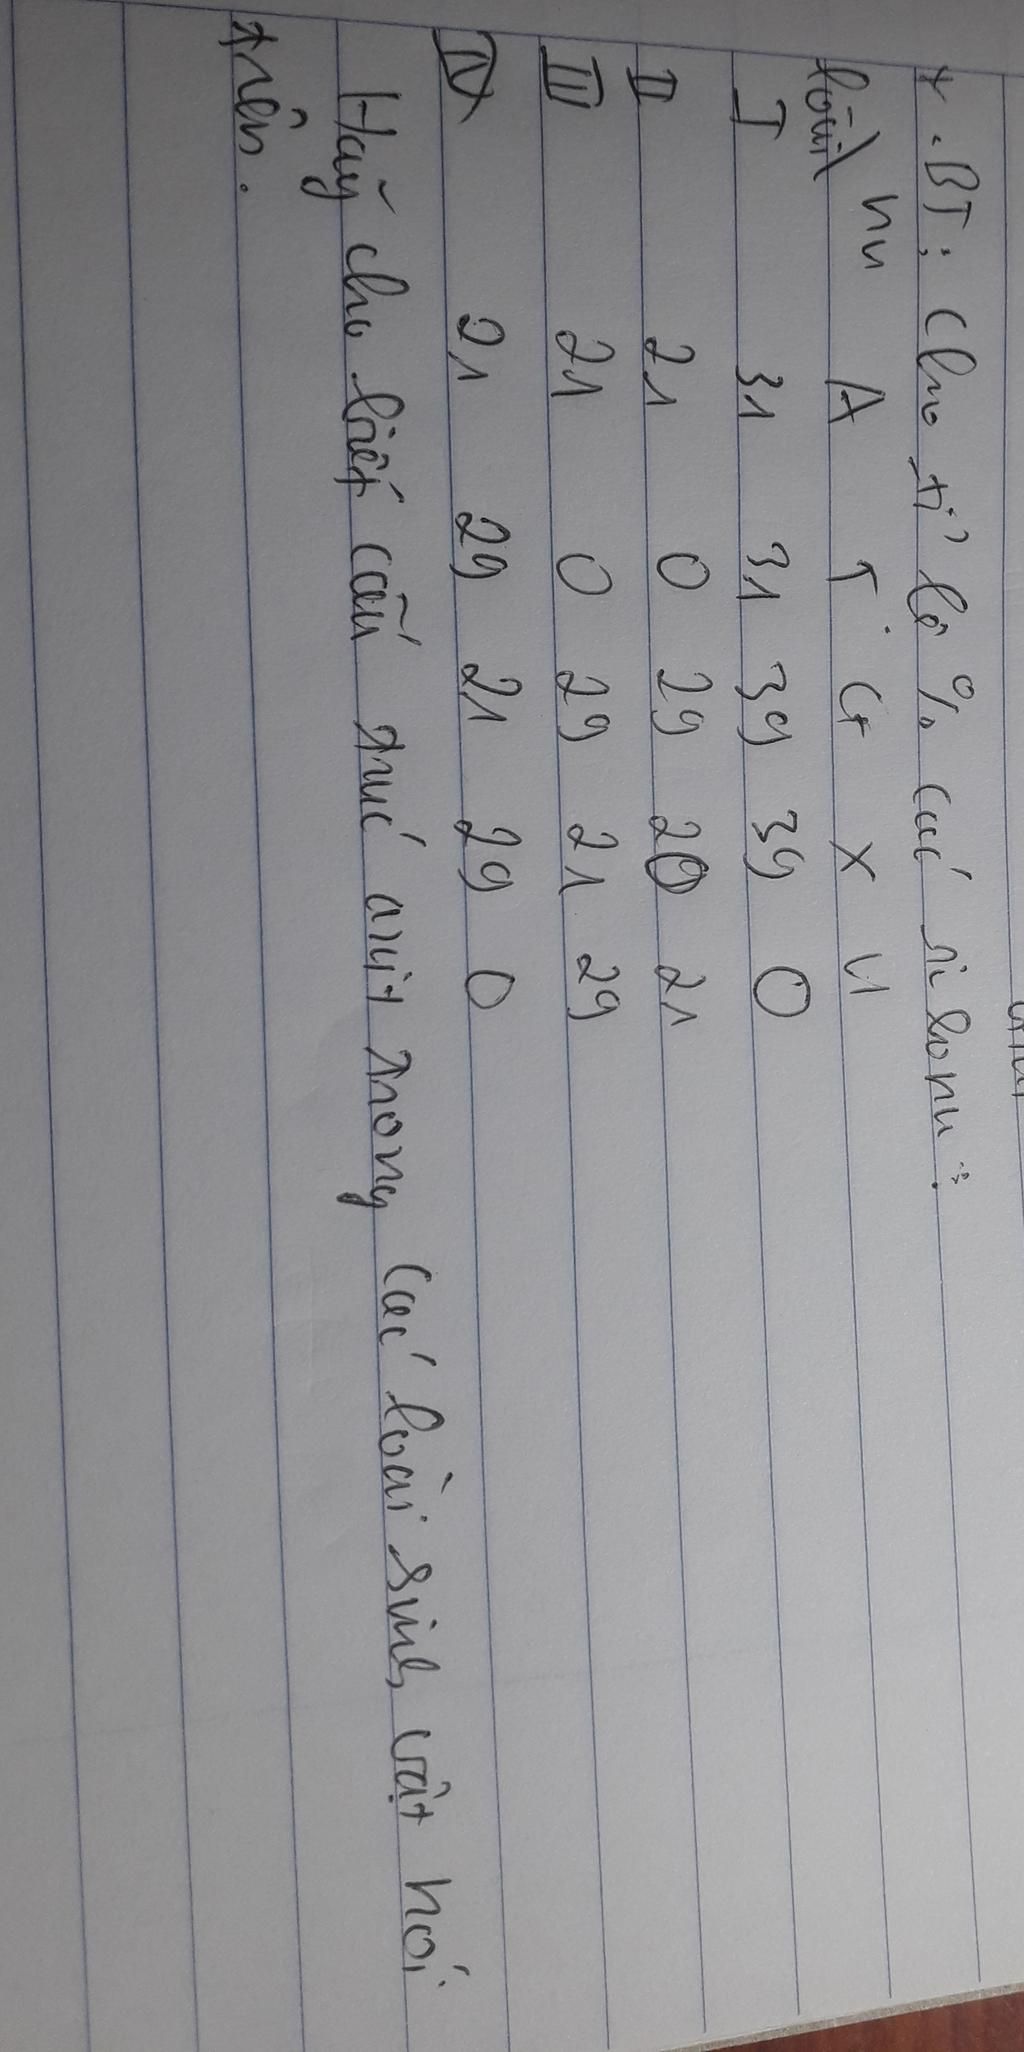 * . BT: Cho tỉ lệ % các ribonu :
loài nu A T G X U
I 31 31 39 39 0
II 21 0 29 29 21
III 21 0 29 21 29
IV 21 29 21 29 0
Hãy cho biết cấu trúc axit trong các loài sinh vật nói
trên.